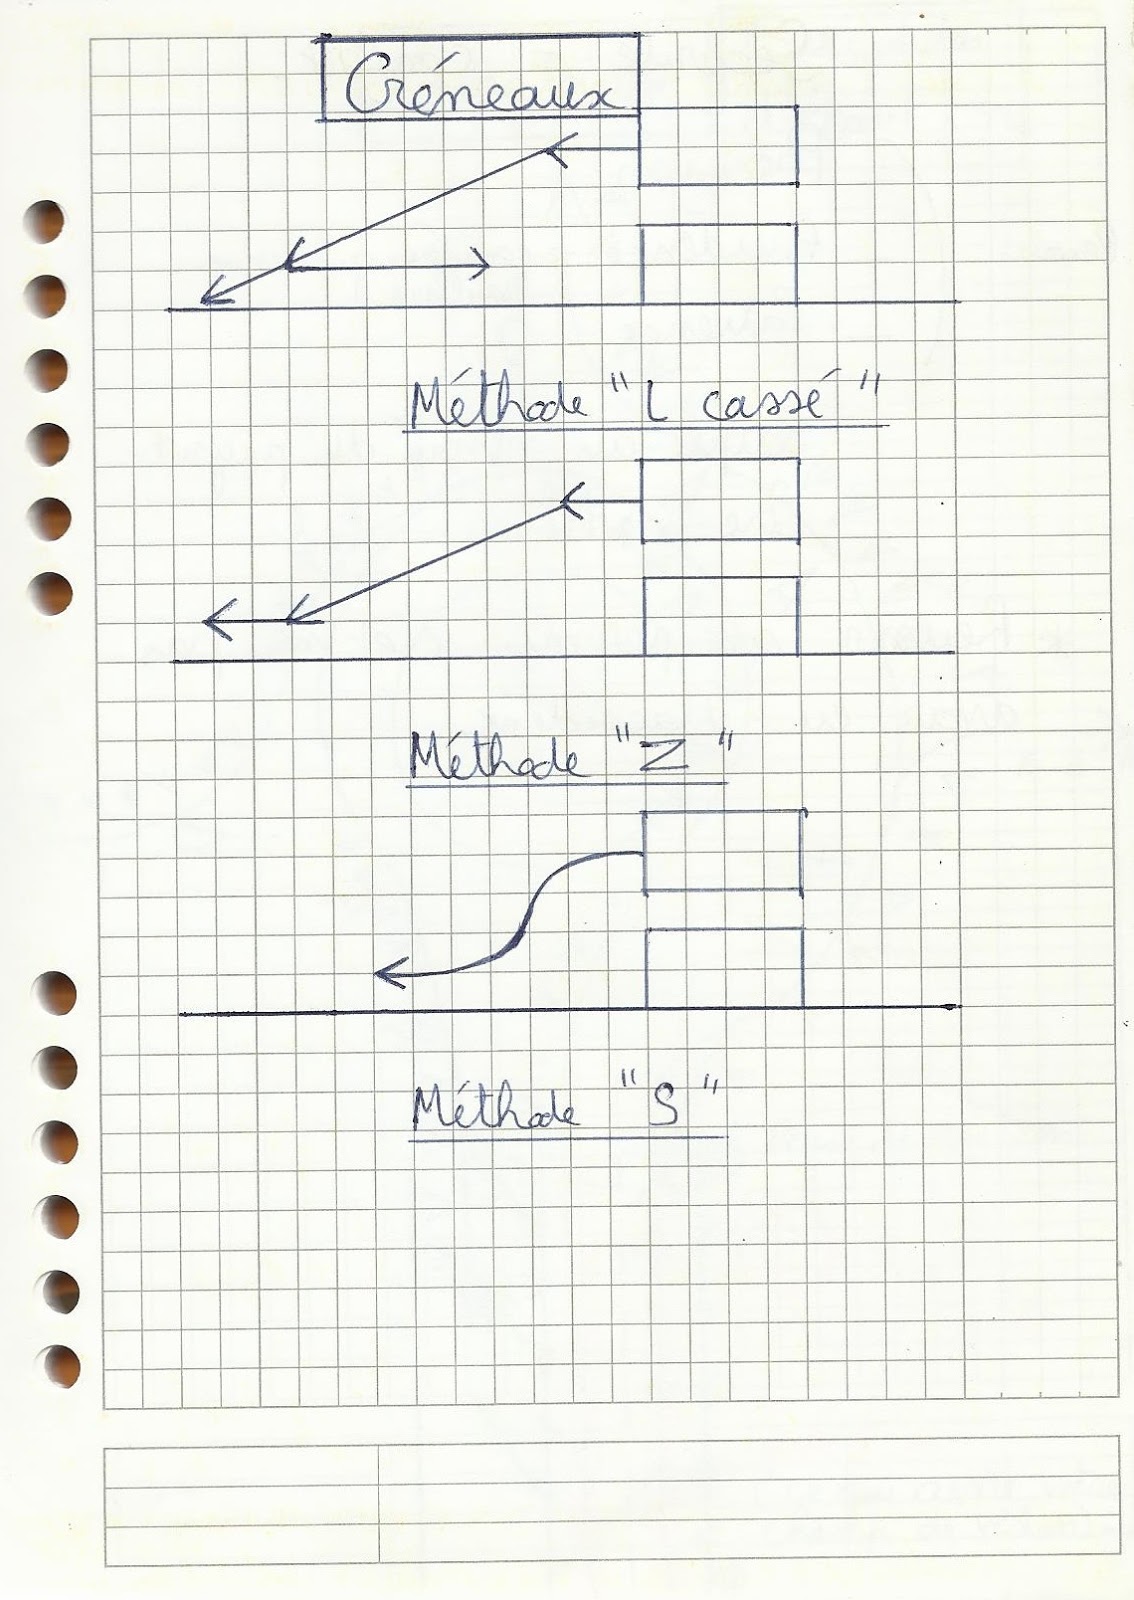 Créneaux
Méthode "L cassé"
Méthode "Z"
Méthode "S"